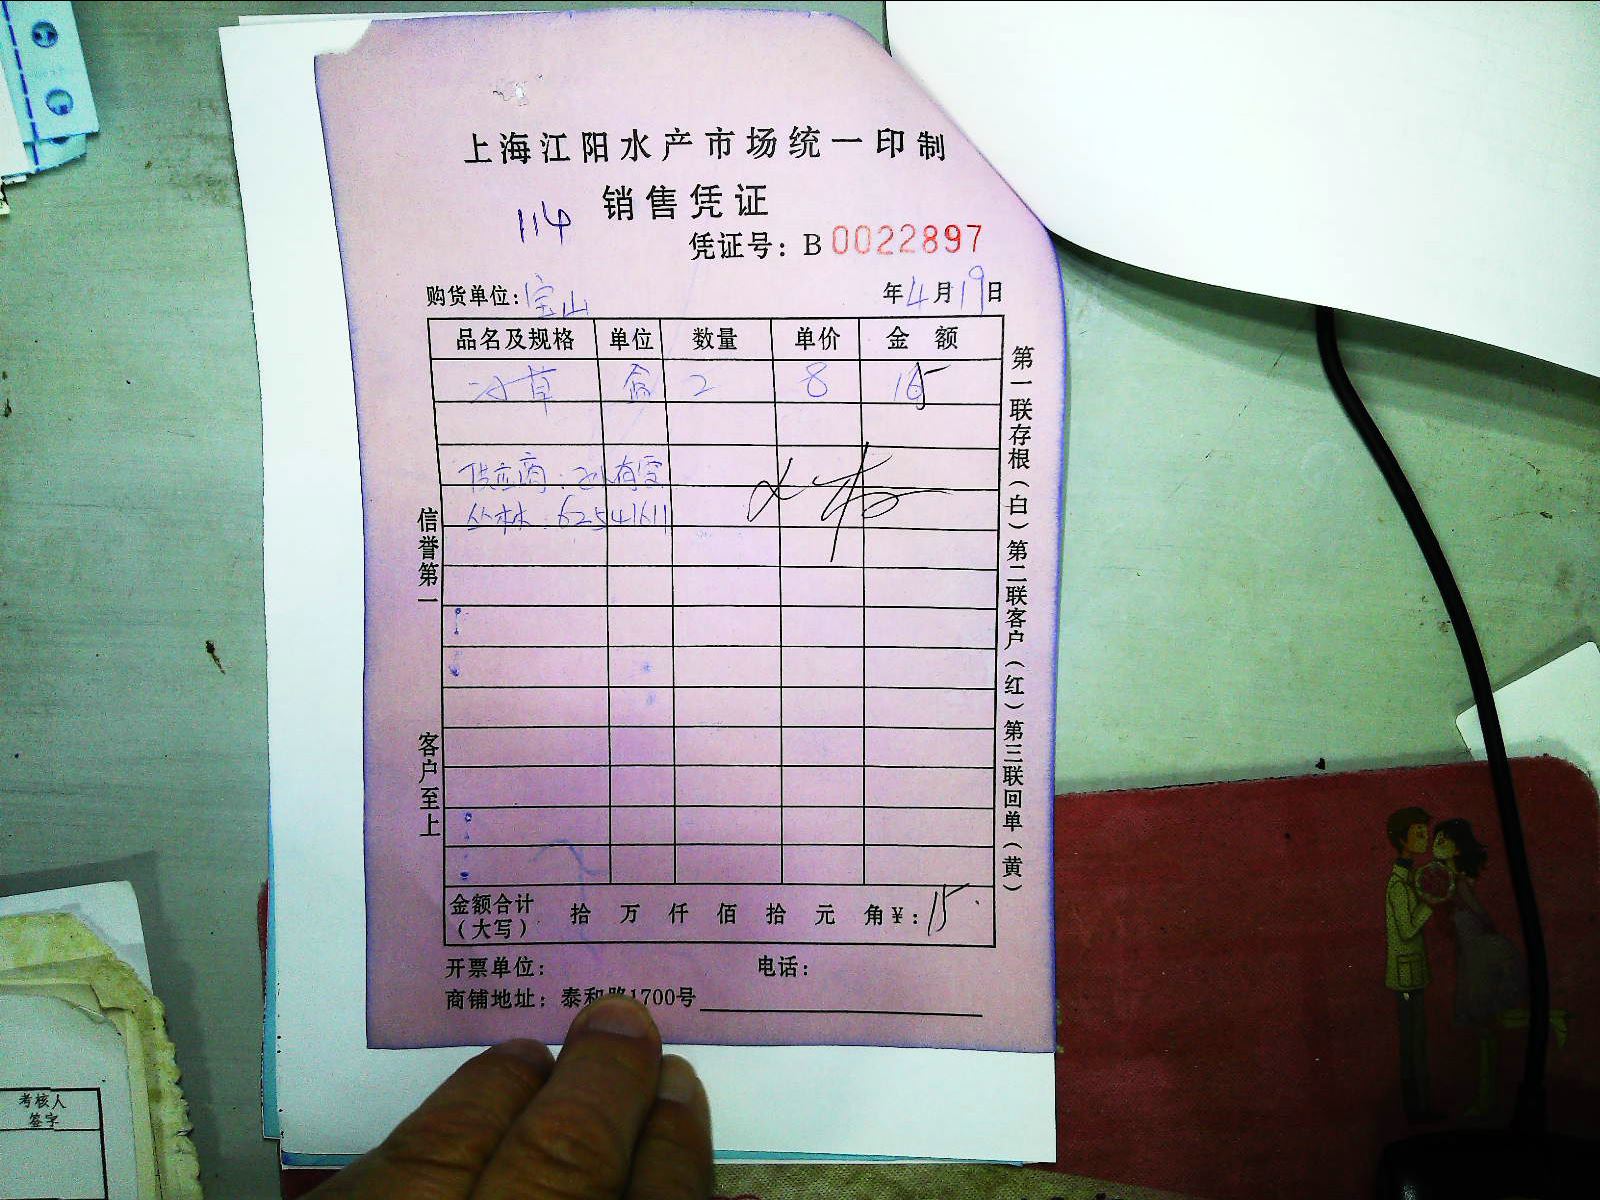 上海江阳水产市场统一印制
销售凭证
114
凭证号：B 0022897
购货单位：宝山 年4月19日
品名及规格 单位 数量 单价 金 额
冰草 盒 2 8 15
供应商：孙有雪
丛林：62541611
信誉第一 客户至上
第一联存根（白）第二联客户（红）第三联回单（黄）
金额合计（大写） 拾 万 仟 佰 拾 元 角¥：15
开票单位： 电话：
商铺地址：泰和路1700号
考核人
签字